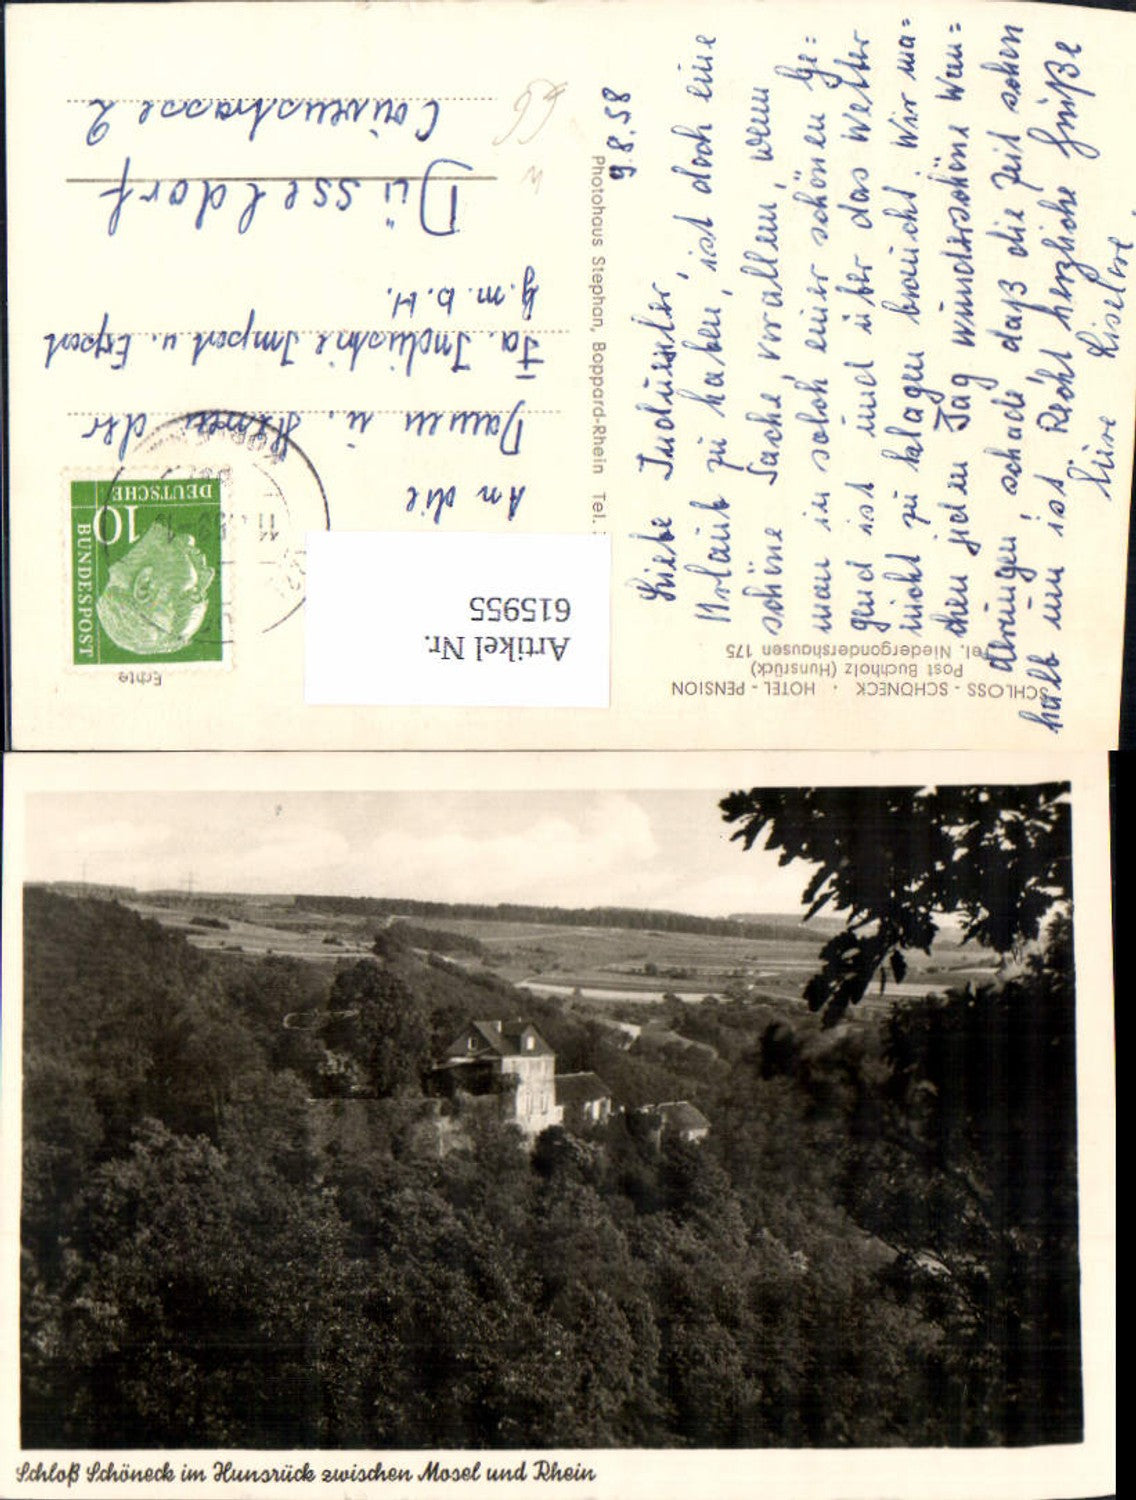 SCHLOSS - SCHÖNECK · HOTEL - PENSION
Post Buchholz (Hunsrück)
Tel. Niedergondershausen 175
9.8.58
Liebe Indunster, ist doch eine
Urlaub zu haben, ist doch eine
schöne Sache, vor allem, wenn
man in solch einer schönen Ge=
gend ist und über das Wetter
nicht zu klagen braucht. Wir ma=
chen jeden Tag wunderschöne Wan=
derungen; schade, daß die Zeit schon
halb um ist. Recht herzliche Grüße
Eure Liselore.
Photohaus Stephan, Boppard-Rhein Tel.
Echte
DEUTSCHE
BUNDESPOST
10
An die
Damen u. Herren der
Fa. Industrie Import u. Export
G.m.b.H.
Düsseldorf
Couvenstrasse 2
Artikel Nr.
615955
Schloß Schöneck im Hunsrück zwischen Mosel und Rhein